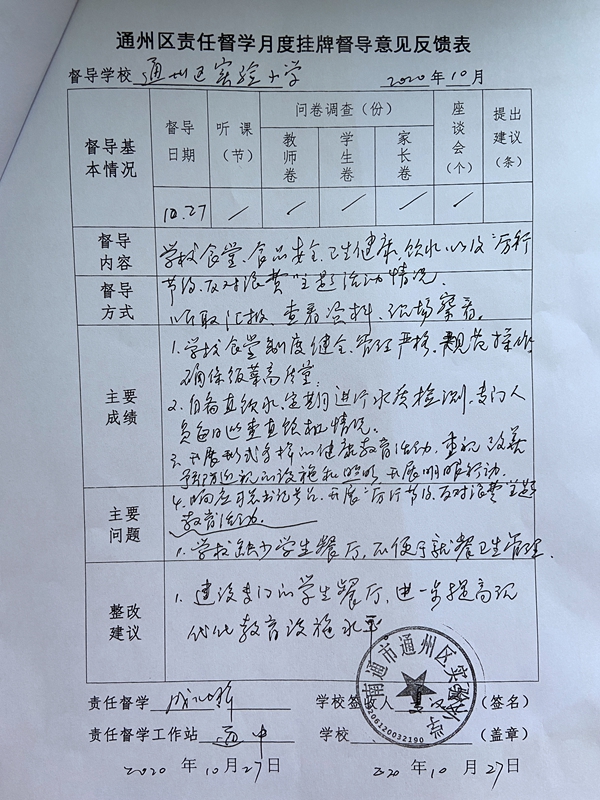 通州区责任督学月度挂牌督导意见反馈表
督导学校 通州区实验小学 2020年10月
督导基本情况
督导日期
听课（节）
问卷调查（份）
教师卷
学生卷
家长卷
座谈会（个）
提出建议（条）
10.27 / / / / /
督导内容
学校食堂、食品安全、卫生健康、饮水、以及“厉行
节约、反对浪费”主题活动情况。
督导方式
听取汇报、查看资料、现场察看。
主要成绩
1.学校食堂制度健全、管理严格、规范操作
确保饭菜高质量。
2.自备直饮水、定期进行水质检测、专门人
员每日巡查直饮机情况。
3.开展形式多样的健康教育活动，重视改善
预防近视的设施和照明，开展明眼行动。
4.响应习总书记号召，开展“厉行节约、反对浪费”主题
教育活动。
主要问题
1.学校缺少学生餐厅，不便于就餐卫生管理。
整改建议
1.建设专门的学生餐厅，进一步提高现
代化教育设施水平
责任督学 学校签收人 （签名）
责任督学工作站 学校 （盖章）
2020年10月27日 2020年10月27日
南通市通州区实验小学
3206120032190